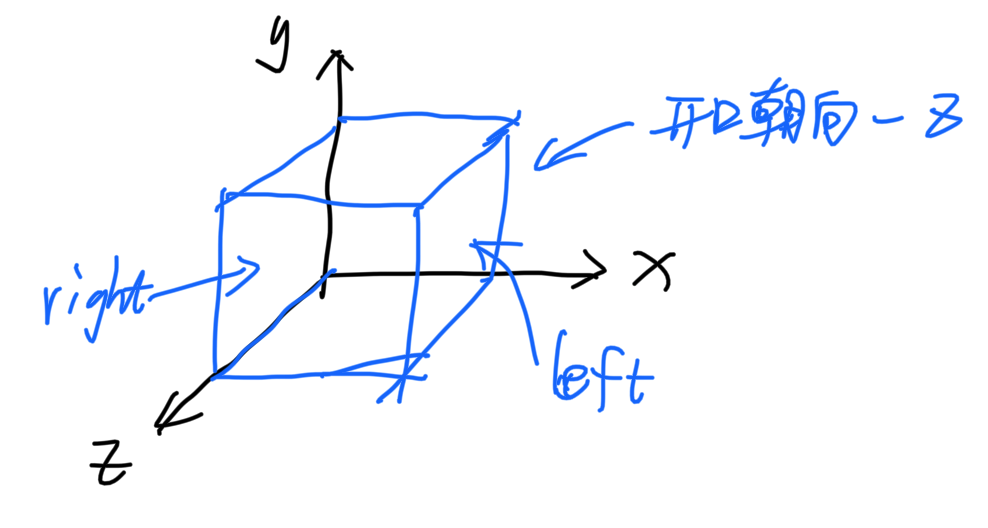 y
开口朝向-z
x
right
left
z